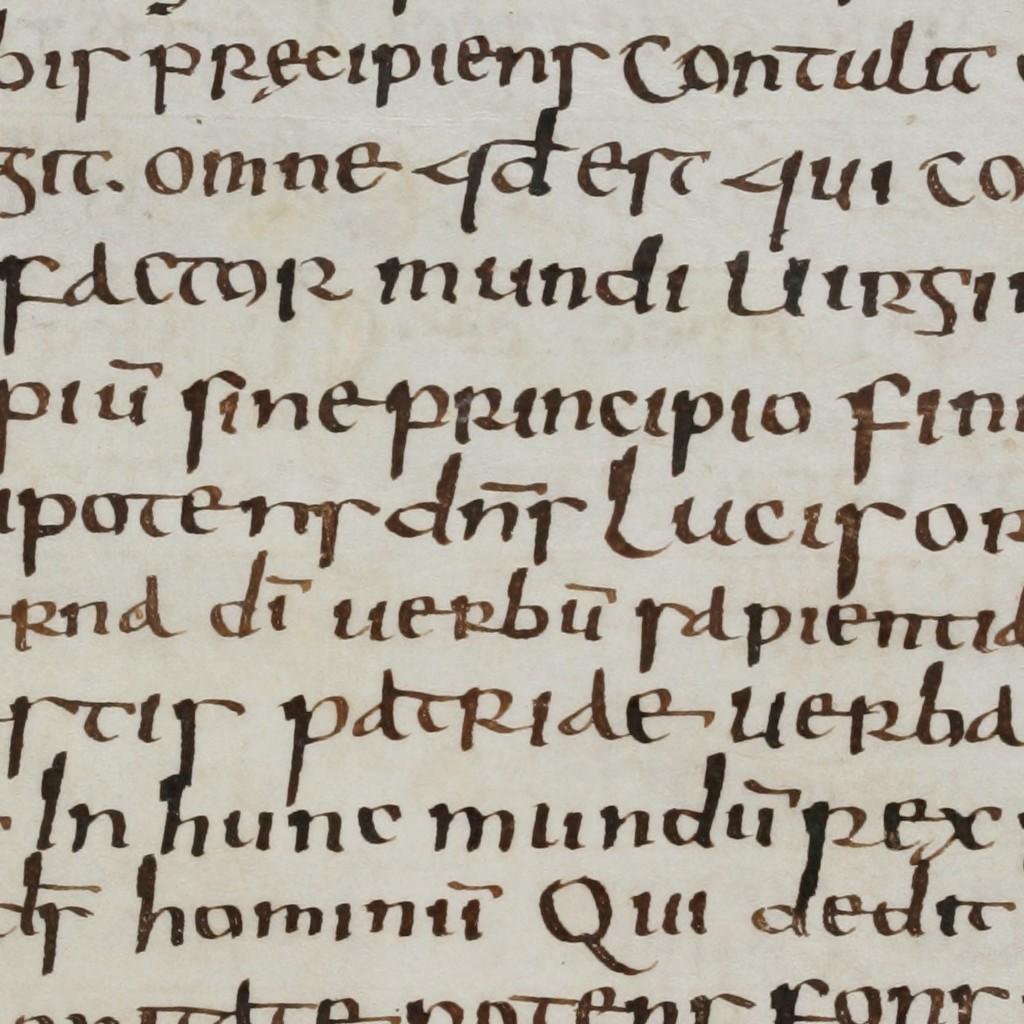 bis pręcipiens Contulit
git. omne qd est qui co
factor mundi Uirgin
piū sine principio fini
ipotens dn̄s Lucis or
erna dī uerbū sapientia
stis patriae uerba
In hunc mundū rex
ds̄ hominū Qui dedit
potens fons